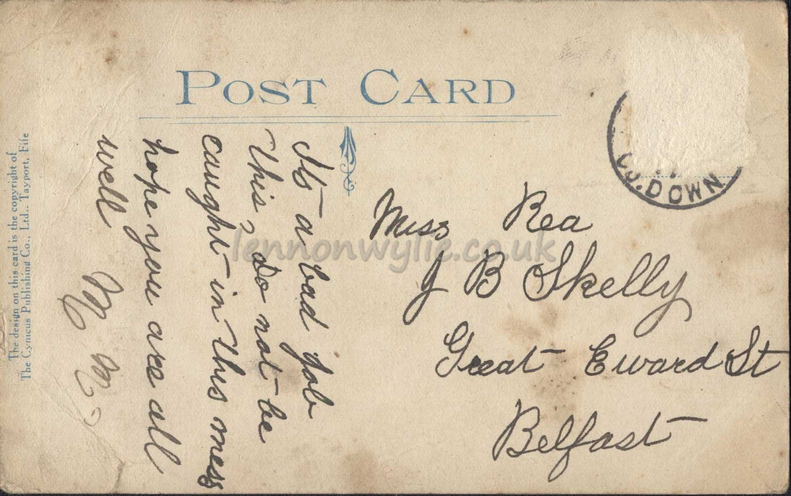 POST CARD
The design on this card is the copyright of
The Cynicus Publishing Co., Ltd., Tayport, Fife
Its a bad job
this, do not be
caught in this mess
hope you are all
well
CO. DOWN
Miss Rea
J B Skelly
Great Eward St
Belfast
lennonwylie.co.uk